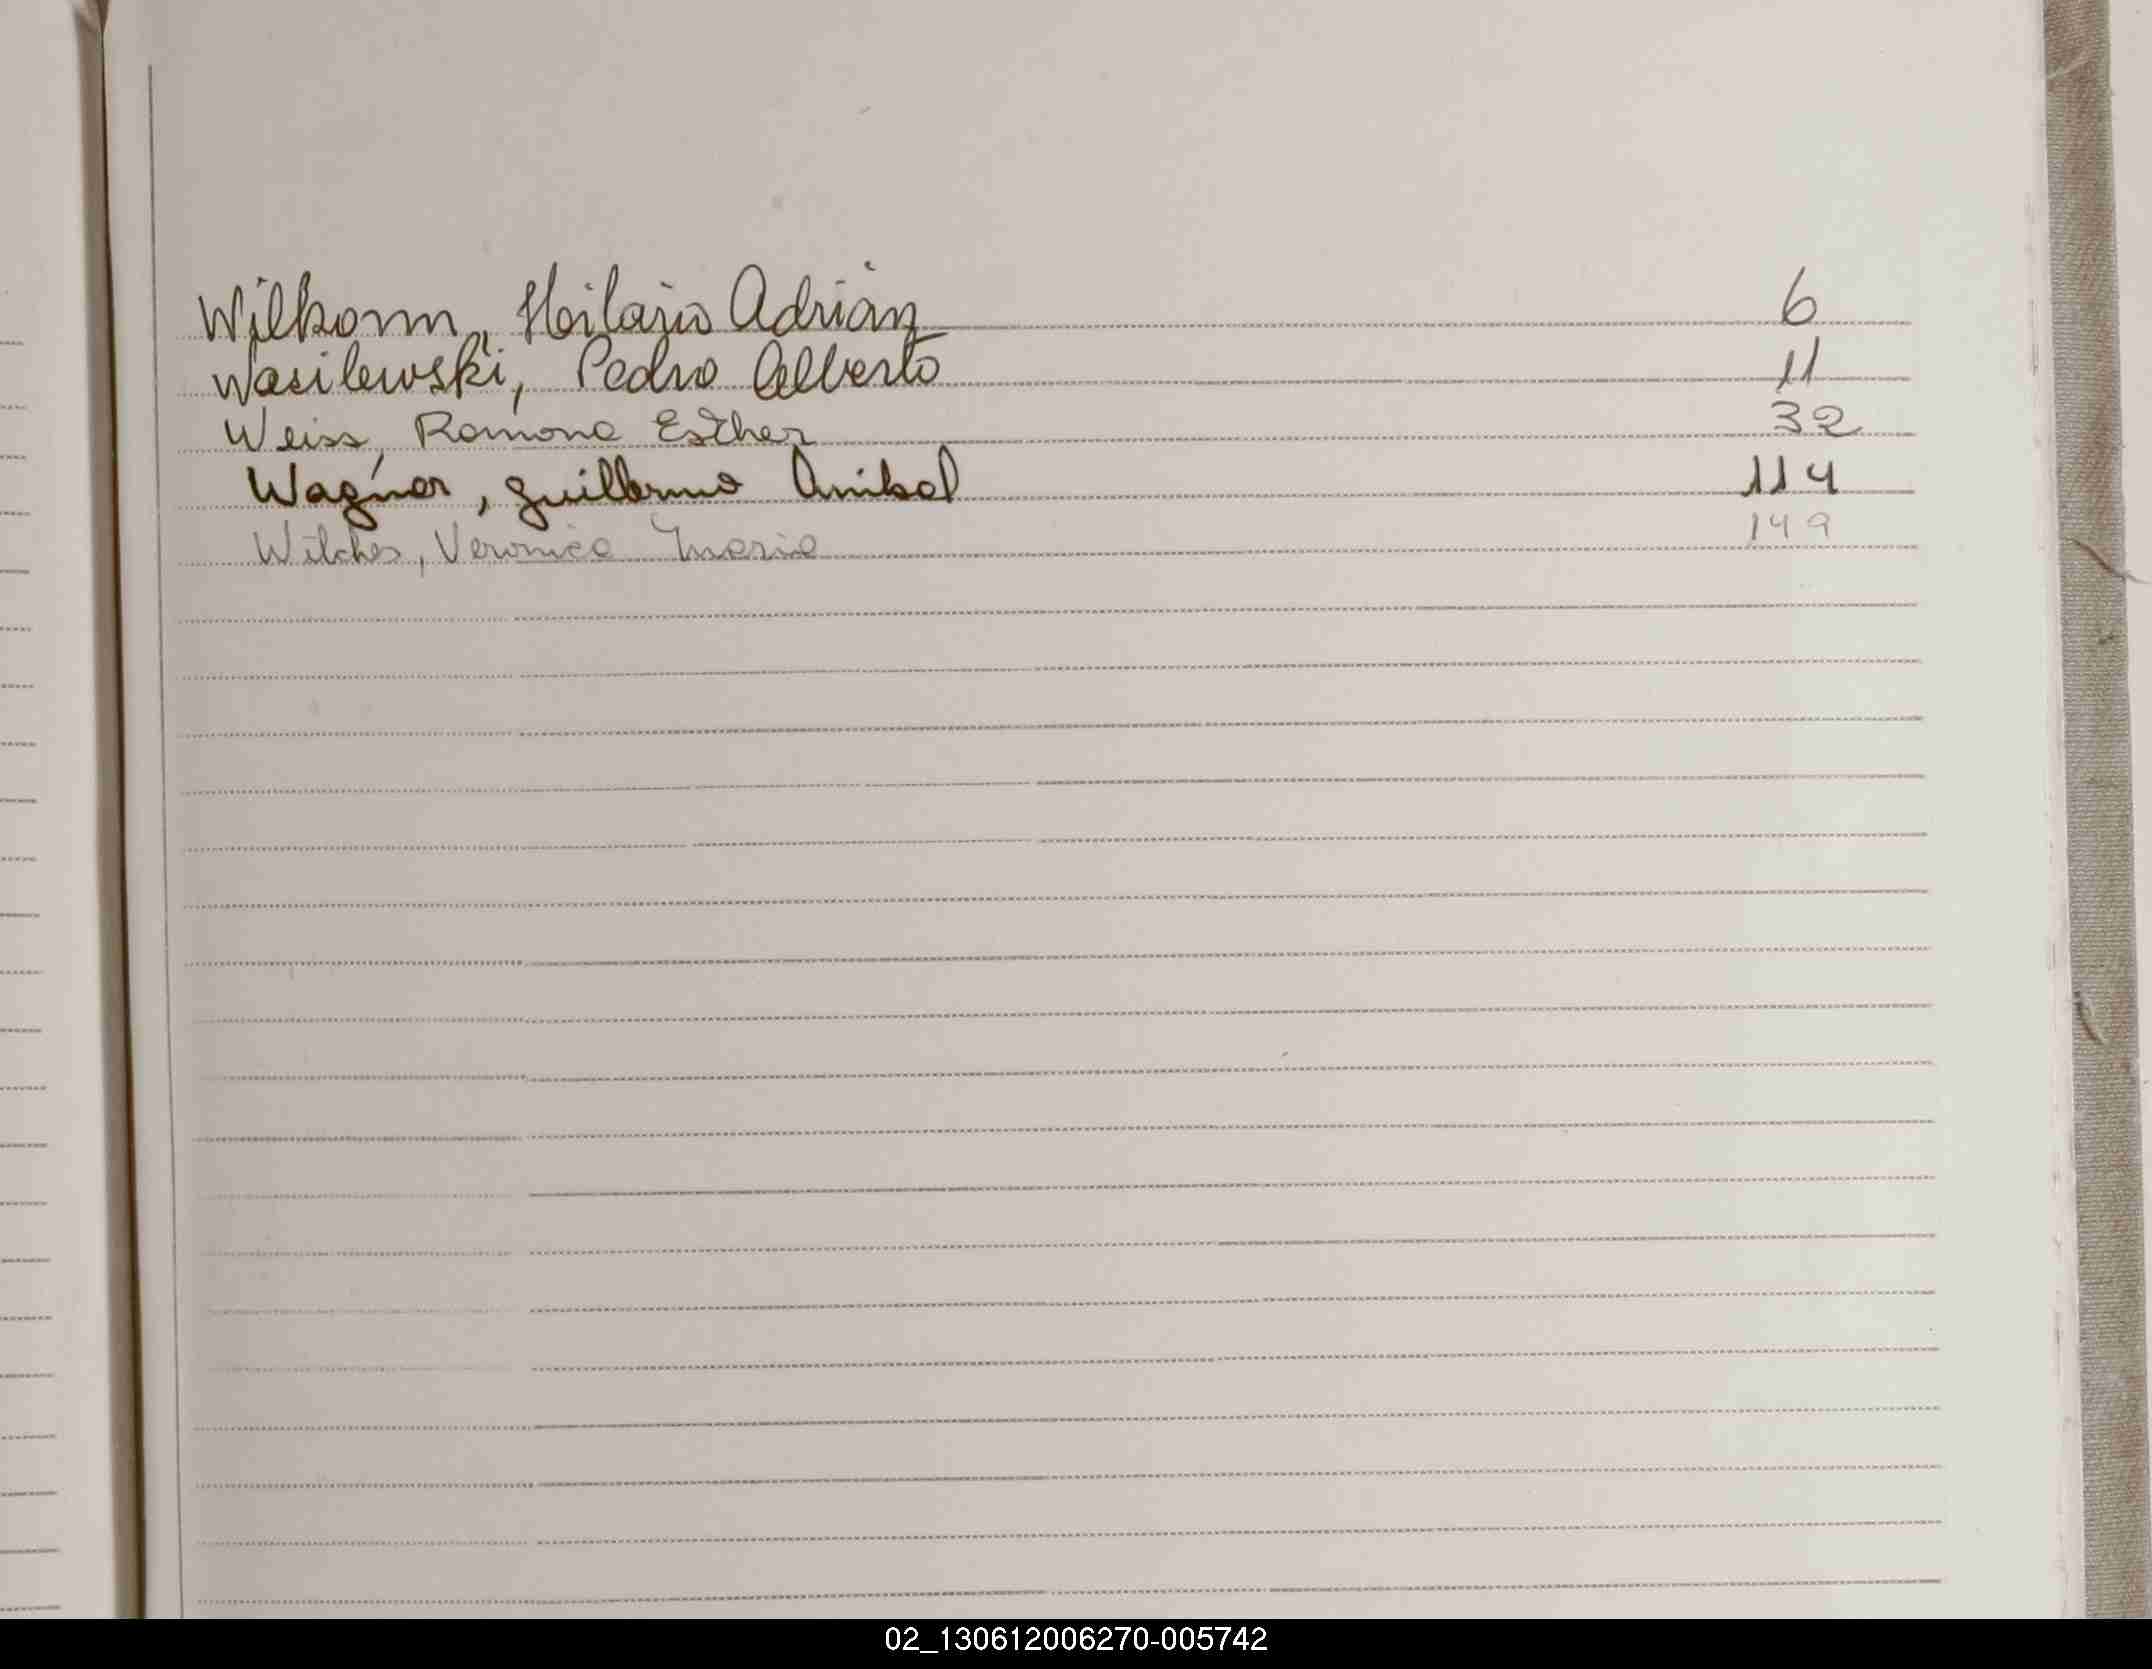 Wilkomm, Hilario Adrián 6
Wasilewski, Pedro Alberto 11
Weiss, Ramona Esther 32
Wagner, Guillermo Anibal 114
Wilches, Veronica Maria 149
02_130612006270-005742